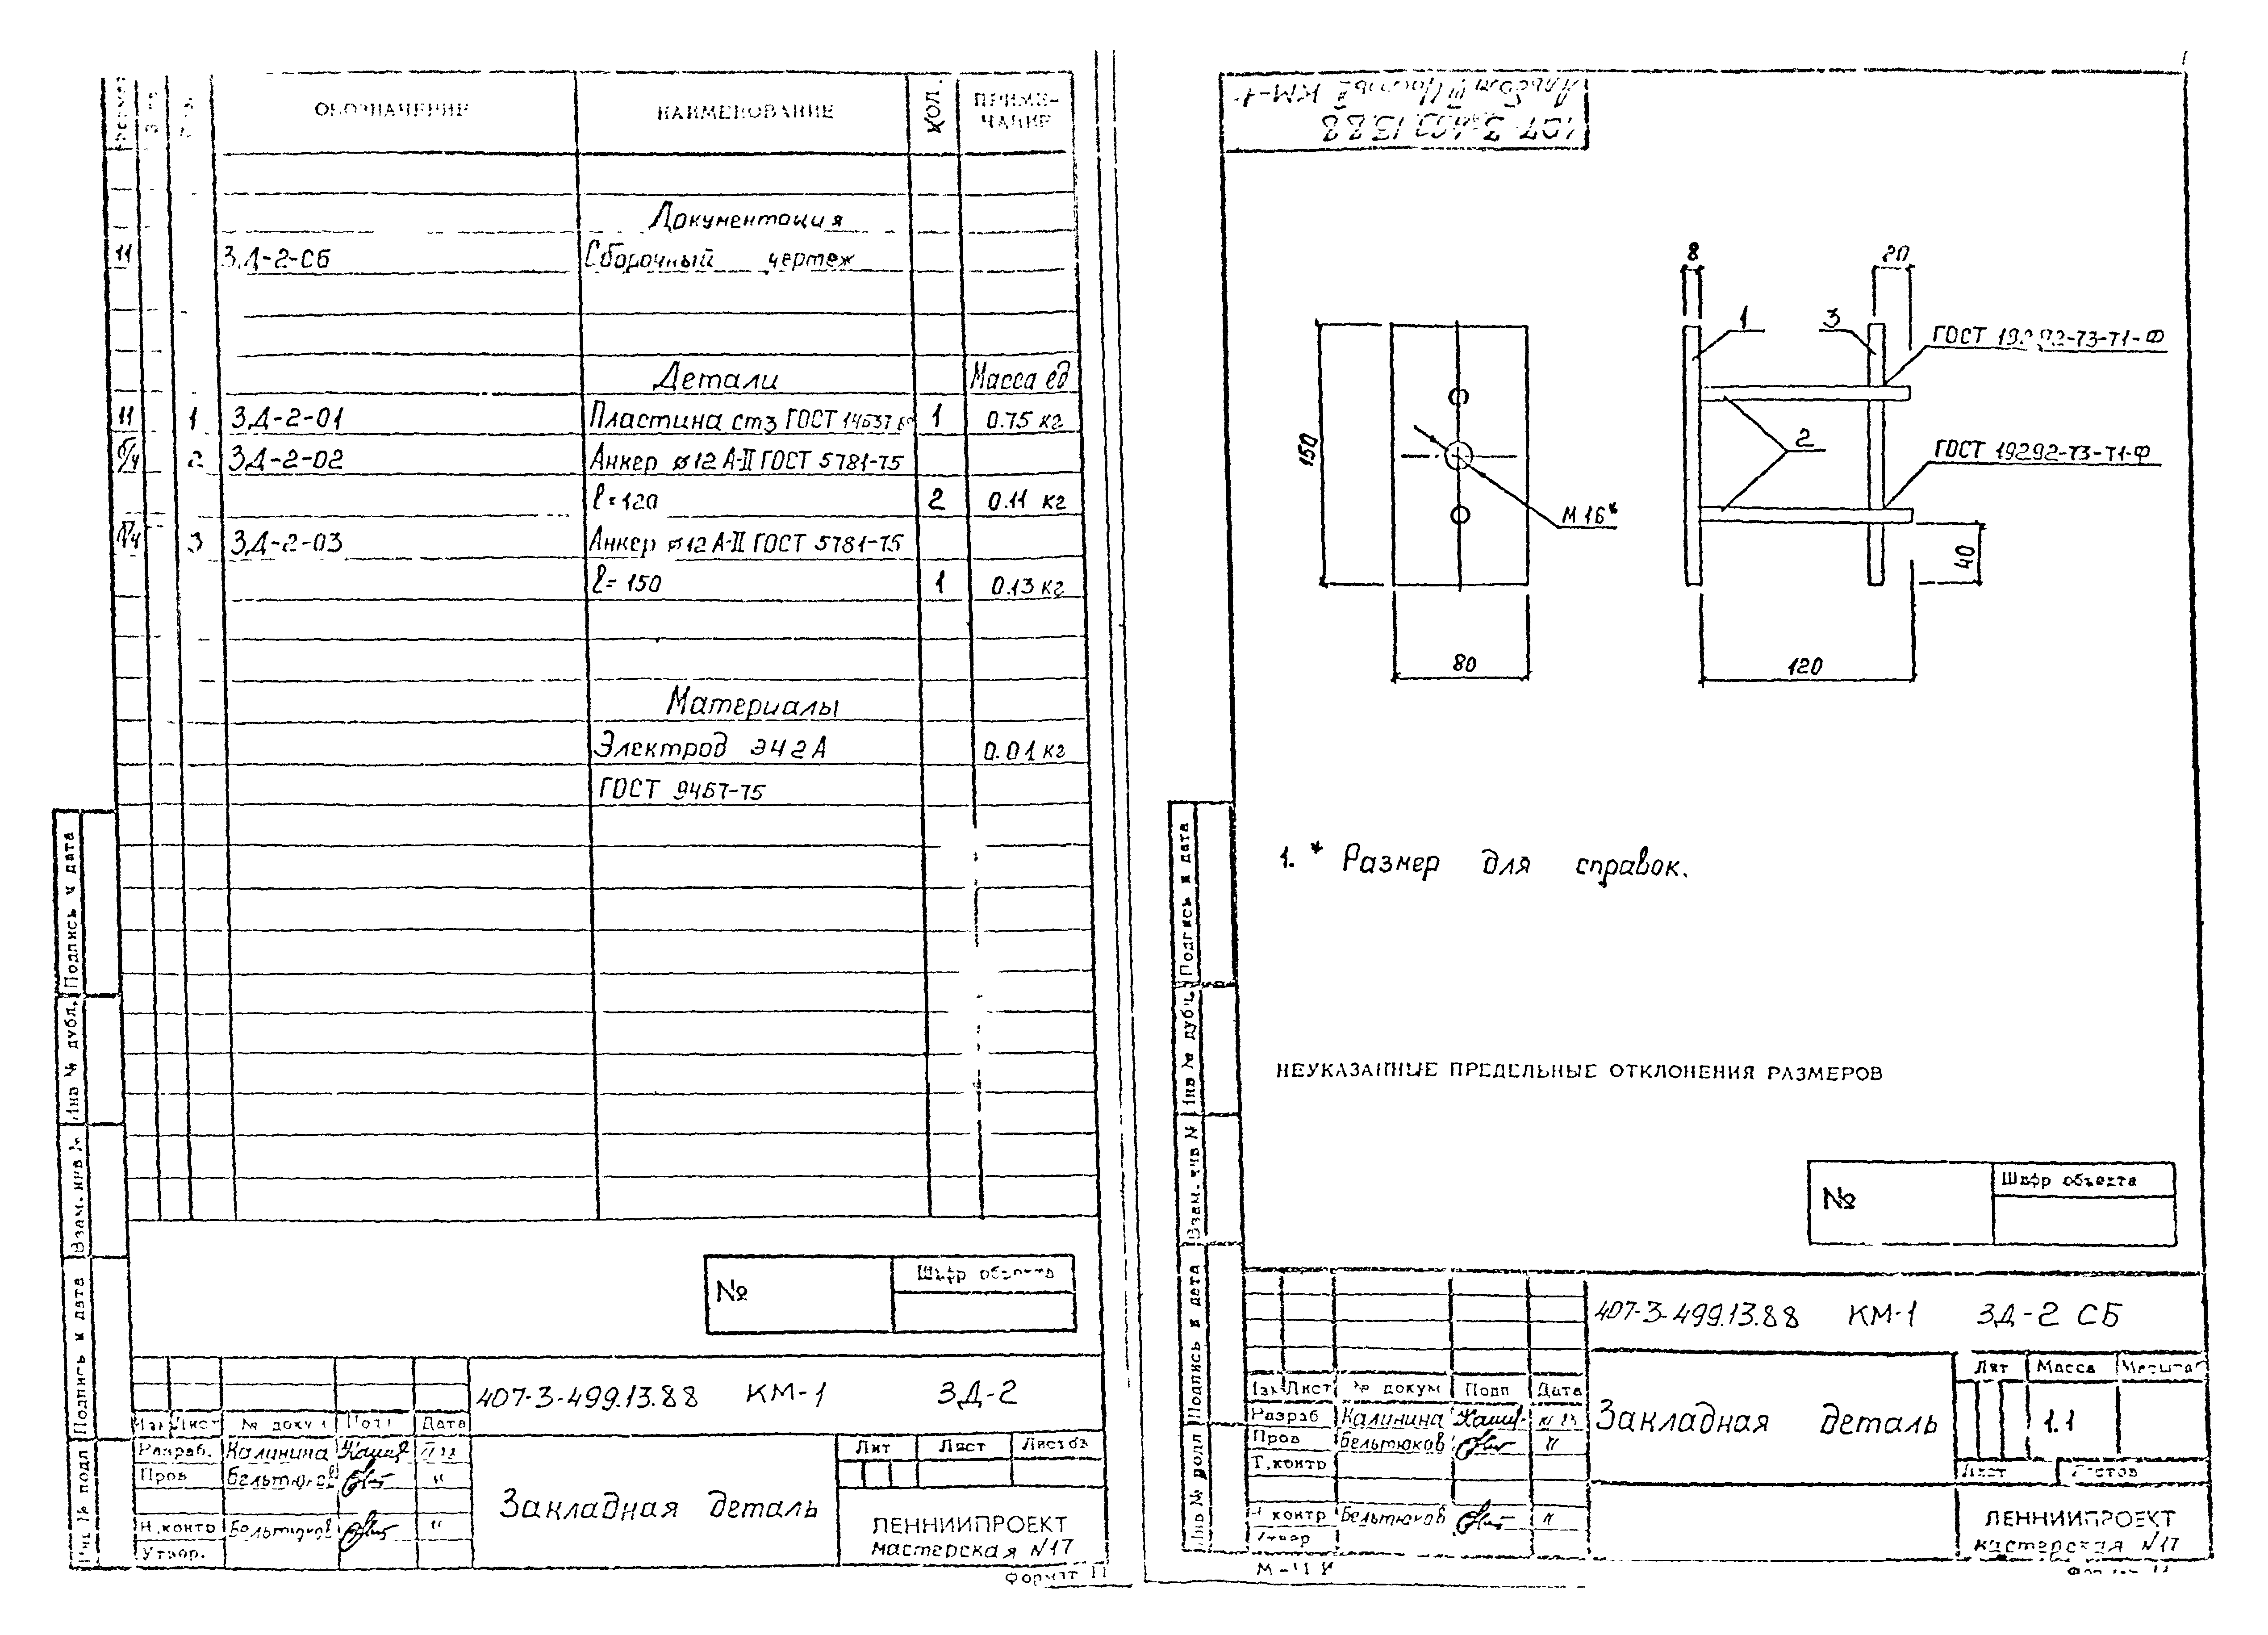 ОБОЗНАЧЕНИЕ НАИМЕНОВАНИЕ КОЛ. ПРИМЕ-
ЧАНИЕ
Документация
11 ЗД-2-СБ Сборочный чертеж
Детали Масса ед
11 1 ЗД-2-01 Пластина ст3 ГОСТ 14637 1 0.75 кг
б/ч 2 ЗД-2-02 Анкер ⌀12 А-II ГОСТ 5781-75
ℓ=120 2 0.11 кг
б/ч 3 ЗД-2-03 Анкер ⌀12 А-II ГОСТ 5781-75
ℓ=150 1 0.13 кг
Материалы
Электрод Э42А 0.01 кг
ГОСТ 9467-75
Подпись и дата
Инв № дубл.
Взам. инв №
Подпись и дата
Инв № подл
№ Шифр объекта
407-3-499.13.88 КМ-1 ЗД-2
Изм Лист № докум Подп Дата
Разраб. Калинина
Пров Бельтюков "
Н.контр Бельтюков "
Утвер.
Закладная деталь
Лит Лист Листов
ЛЕННИИПРОЕКТ
мастерская №17
Формат 11
407-3-499.13.88
Альбом III КМ-1
8 20
1 3
ГОСТ 19292-73-Т1-Ф
2
ГОСТ 19292-73-Т1-Ф
150
М16*
40
80 120
1. * Размер для справок.
НЕУКАЗАННЫЕ ПРЕДЕЛЬНЫЕ ОТКЛОНЕНИЯ РАЗМЕРОВ
Подпись и дата
Инв № дубл.
Взам. инв №
Подпись и дата
Инв № подл
№ Шифр объекта
407-3-499.13.88 КМ-1 ЗД-2 СБ
Изм Лист № докум Подп Дата
Разраб Калинина
Пров Бельтюков "
Т.контр
Н контр Бельтюков "
Утвер
Закладная деталь
Лит Масса Масштаб
1.1
Лист Листов
ЛЕННИИПРОЕКТ
мастерская №17
Формат 11